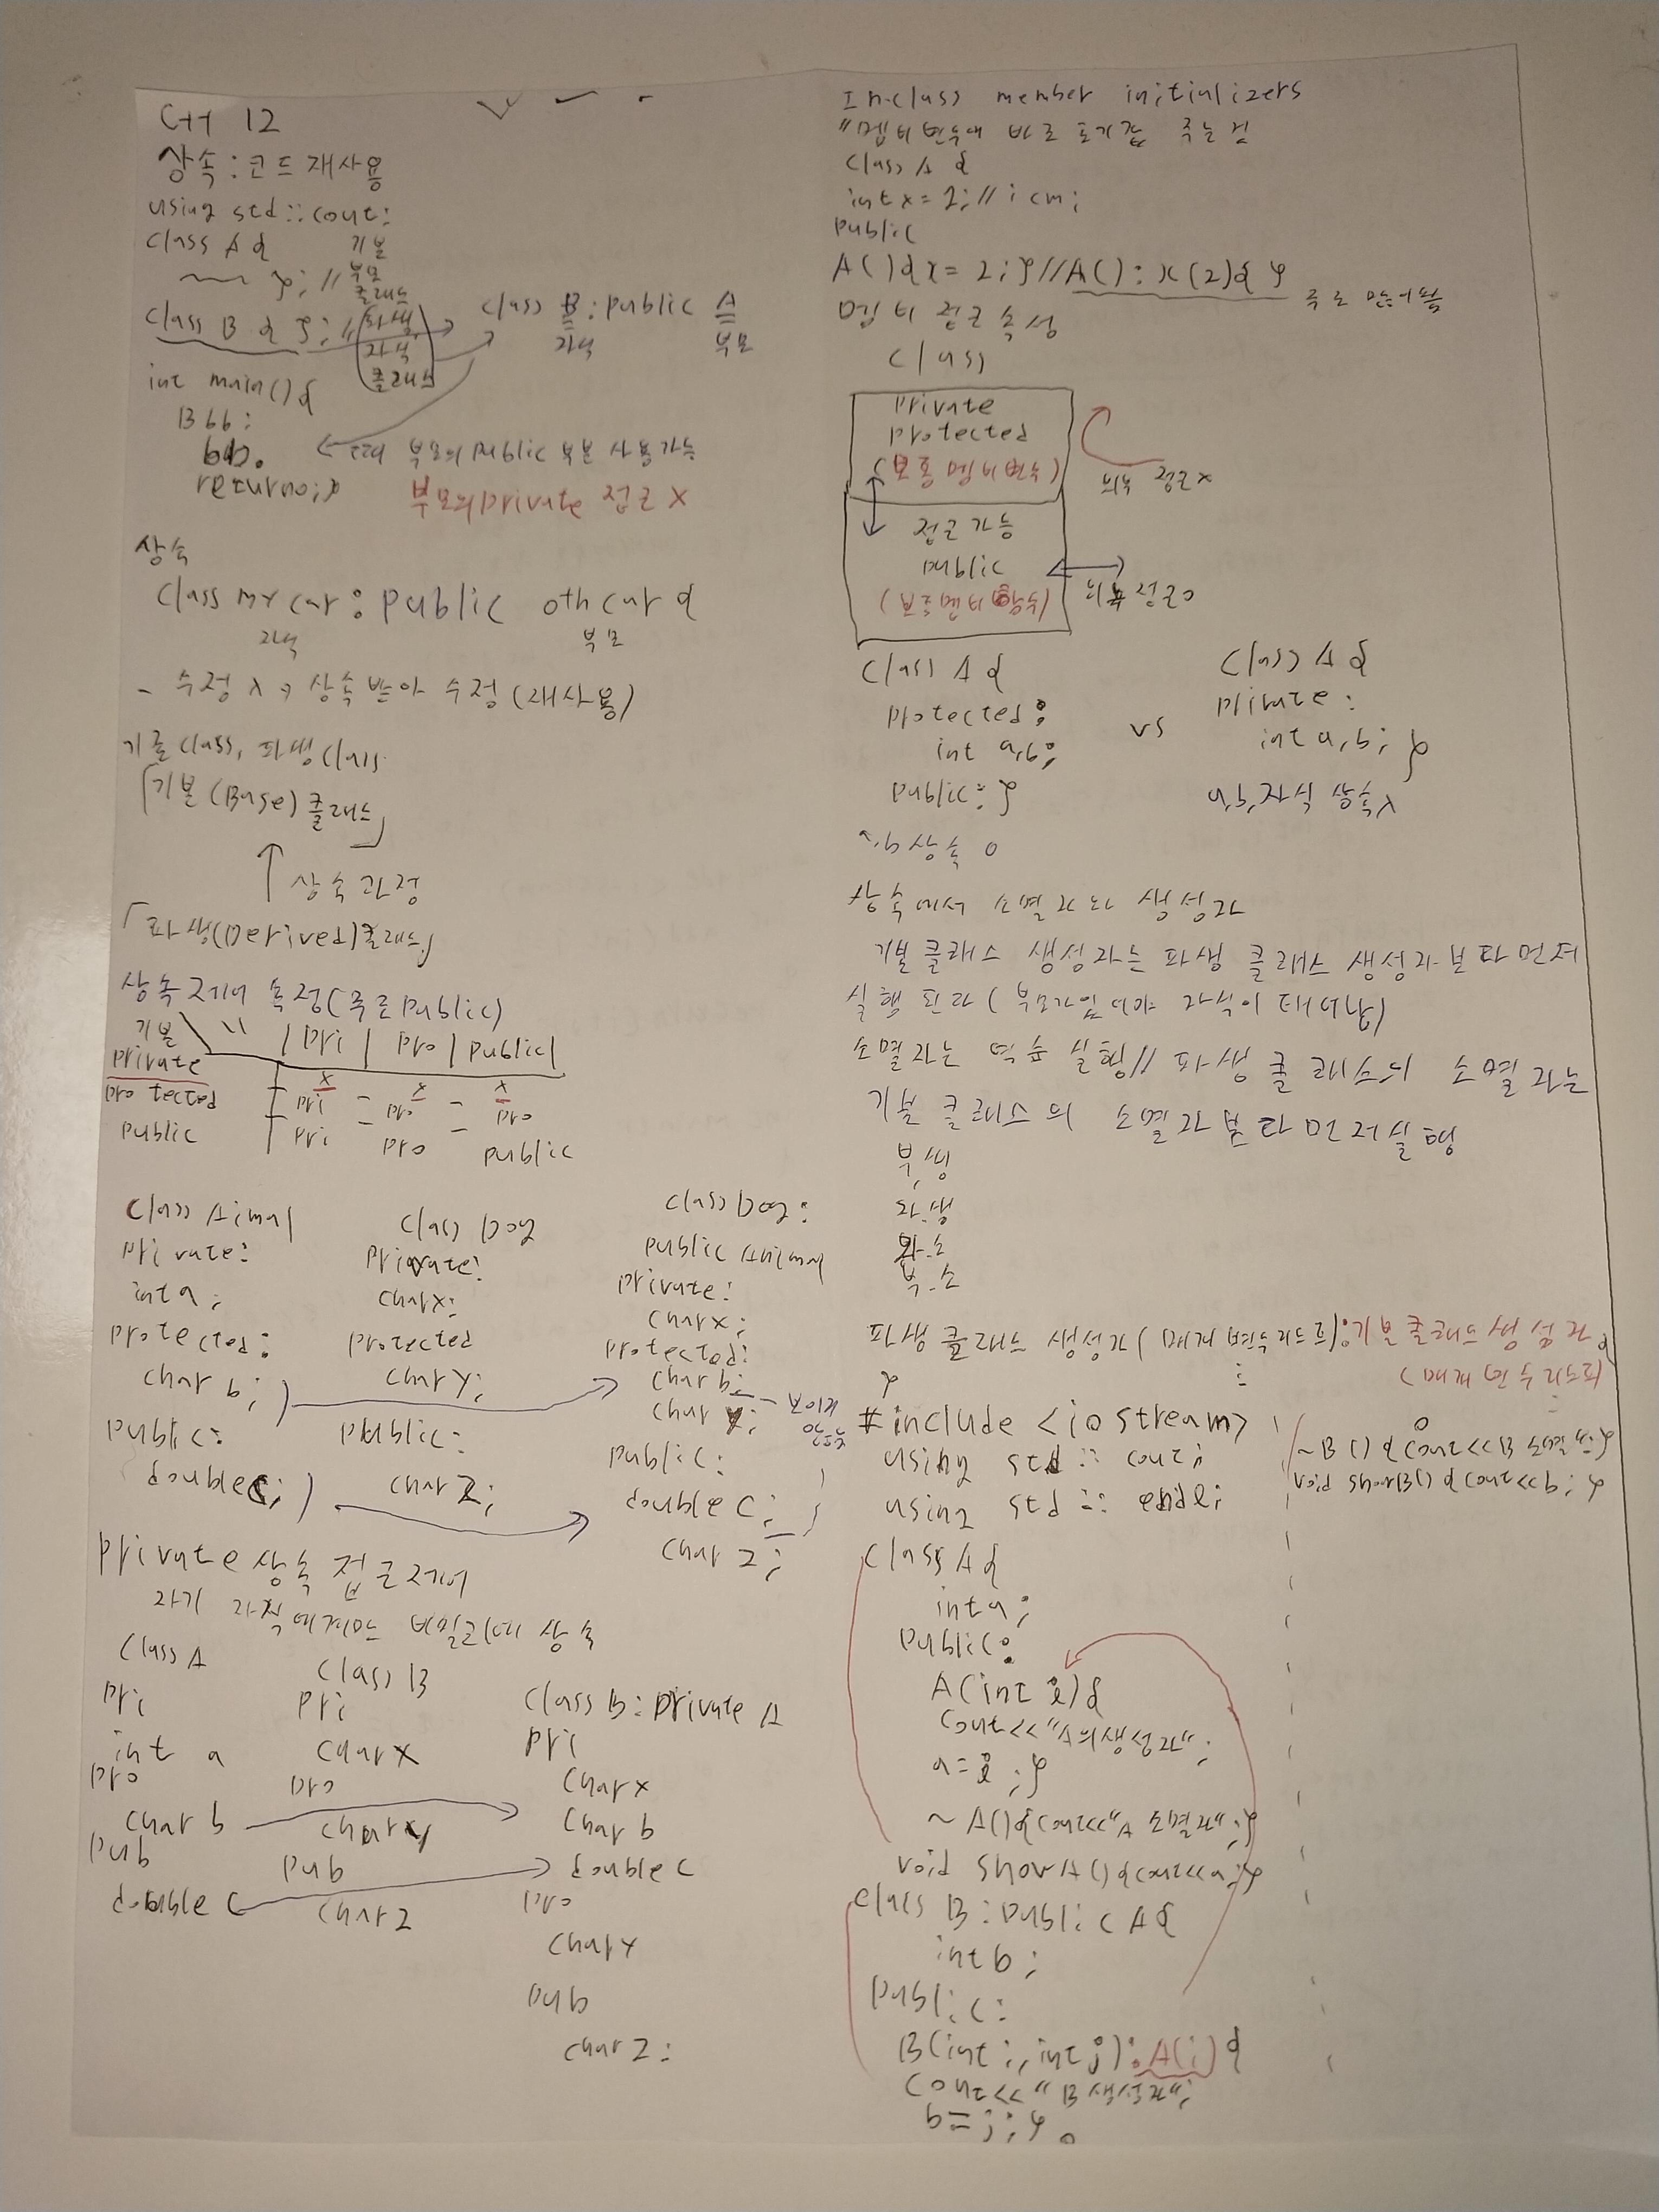 C++ 12
상속:코드 재사용
using std::cout;
class A {
~~ }; // 기본
부모
클래스
class B { }; // 파생
자식
클래스
class B : public A
자식 부모
int main(){
B bb;
bb.
부모의 public 부분 사용가능
return 0;}
부모의 private 접근 X
상속
class my car : public oth car {
자식 부모
- 수정 X → 상속 받아 수정(재사용)
class, 파생 class
「기본(Base) 클래스」
↑ 상속 과정
「파생(Derived)클래스」
상속 제어 속정(주로 public)
기본 \ " | pri | pro | public |
private x x x
protected pri - pro - pro
public pri - pro - public
class Aimal
private:
int a;
protected:
char b;
public:
double c;
class Dog
private:
char x;
protected
char y;
public:
char z;
class Dog:
public Animal
private:
char x;
protected:
char b;
char y;
보이지
않는
public:
double c;
char z;
private 상속 접근 제어
자기 자식에게만 비밀리에 상속
class A
pri
int a
pro
char b
pub
double c
class B
pri
char x
pro
char y
pub
char z
class B : private A
pri
char x
char b
double c
pro
char y
pub
char z:
In-class member initializers
// 멤버변수에 바로 초기값 주는 것
class A {
int x = 2; // icm;
public
A(){x = 2;} // A() : x(2){ }
주로
멤버 접근 속성
class
private
protected
(보통 멤버 변수)
외부 접근 x
접근 가능
public
(보통 멤버 함수)
외부 접근 o
class A {
protected:
int a,b;
public: }
a,b 상속 O
vs
class A {
private:
int a,b; }
a,b,자식 상속X
상속에서 소멸자와 생성자
기본 클래스 생성자는 파생 클래스 생성자보다 먼저
실행 된다 ( 부모가 있어야 자식이 태어남)
소멸자는 역순 실행 // 파생 클래스의 소멸자는
기본 클래스의 소멸자보다 먼저 실행
부.생
자.생
자.소
부.소
파생 클래스 생성자( 매개 변수리스트):기본클래스생성자
(매개 변수 리스트)
{
⋮
}
#include <iostream>
using std :: cout;
using std :: endl;
class A {
int a;
public:
A(int i) {
cout<<"A의생성자";
a = i ; }
~ A(){cout<<"A 소멸자";}
void showA(){cout<<a;}
class B : public A {
int b;
public:
B(int i, int j) : A(i) {
cout<< "B 생성자";
b = j; }
~B(){cout<<B 소멸";}
void showB(){cout<<b; }